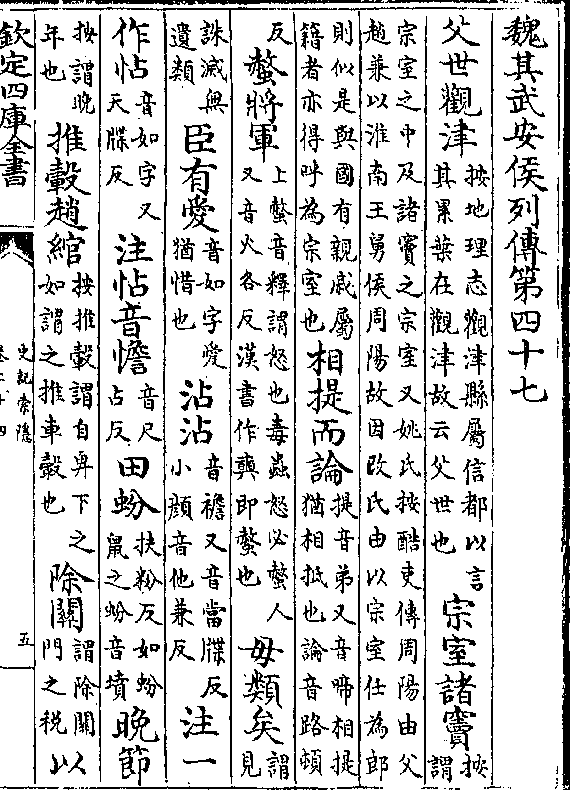 魏其武安侯列傳第四十七
父世觀津按地理志觀津縣屬信都以言其累葉在觀津故云父世也宗室諸竇按謂
宗室之中及諸竇之宗室又姚氏按酷吏傳周陽由父趙兼以淮南王舅侯周陽故因改氏由以宗室仕為郎
則似是與國有親戚屬籍者亦得呼為宗室也相提而論提音弟又音啼相提猶相抵也論音路頓
反螫將軍上螫音釋謂怒也毒蟲怒必螫人又音火各反漢書作奭即螫也毋類矣謂見
誅滅無遺類臣有愛音如字愛猶惜也沾沾音襜又音當牒反小顔音他兼反注一
作帖音如字又天牒反注帖音幨音尺占反田蚡扶粉反如蚡鼠之蚡音墳晚節
按謂晚年也推轂趙綰按推轂謂自卑下之如謂之推車轂也除關謂除關門之税以
欽定四庫全書
史記索隱
卷二十四
五